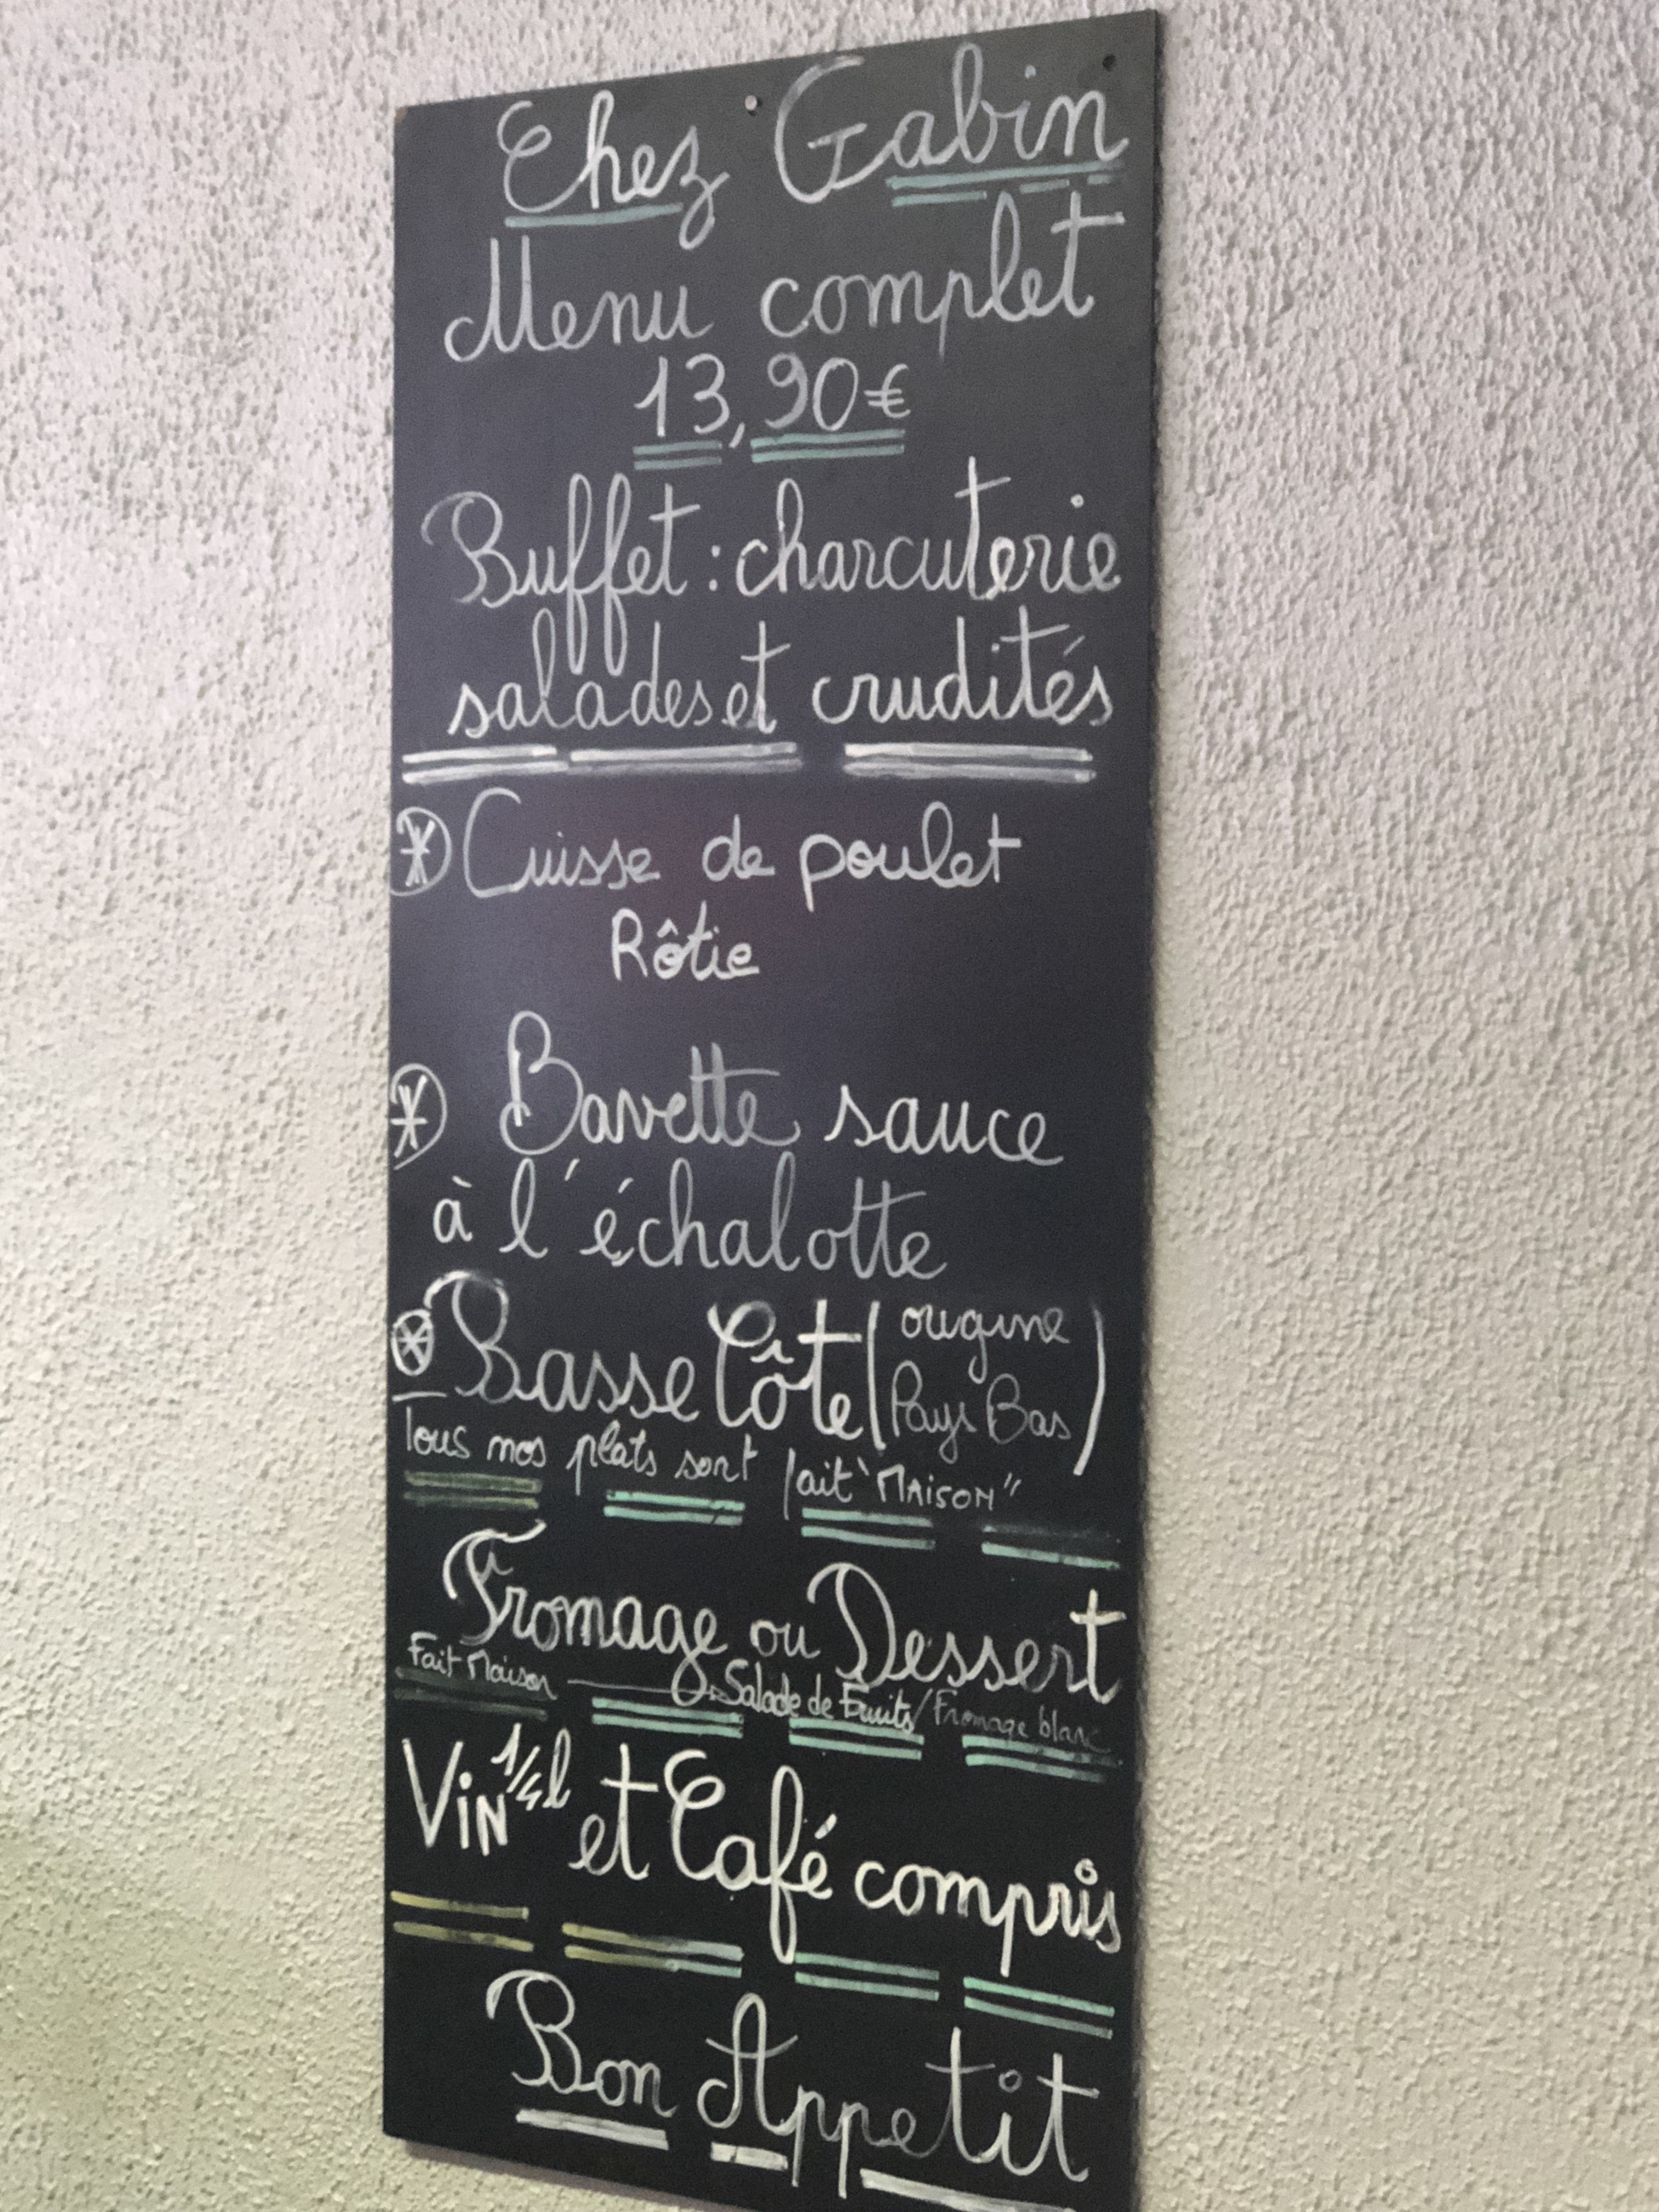 Chez Gabin
Menu complet
13,90€
Buffet : charcuterie
salades et crudités
Cuisse de poulet
Rôtie
Bavette sauce
à l'échalotte
Basse Côte (origine
Pays Bas)
Tous nos plats sont fait "MAISON"
Fromage ou Dessert
Fait Maison Salade de Fruits / Fromage blanc
ViN 1/4 l et Café compris
Bon Appetit